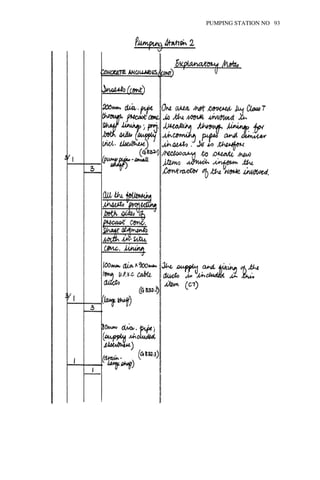 PUMPING STATION NO 93
Pumping Station 2
Explanatory Notes
CONCRETE ANCILLARIES (CONT)
Inserts (cont)
200mm dia. pipe
through precast conc
shaft lining; proj
both sides (supply
incl. elsewhere)
(G832.1)
(pumps pipe - small
shaft)
3/ 1
3
One area not covered by Class T
is the work involved in
breaking through linings for
incoming pipes and similar
inserts. It is therefore
necessary to create new
items which inform the
Contractor of the work involved.
All the following
inserts projecting
both sides of
precast conc.
shaft segments
with in situ
conc. lining
100mm dia x 900mm
long U.P.V.C cable
ducts
3/ 1
(large shaft)
3
The supply and fixing of the
ducts is included in this
item (C7)
80mm dia. pipe;
(supply included
elsewhere)
1
(drain -
large shaft)
1